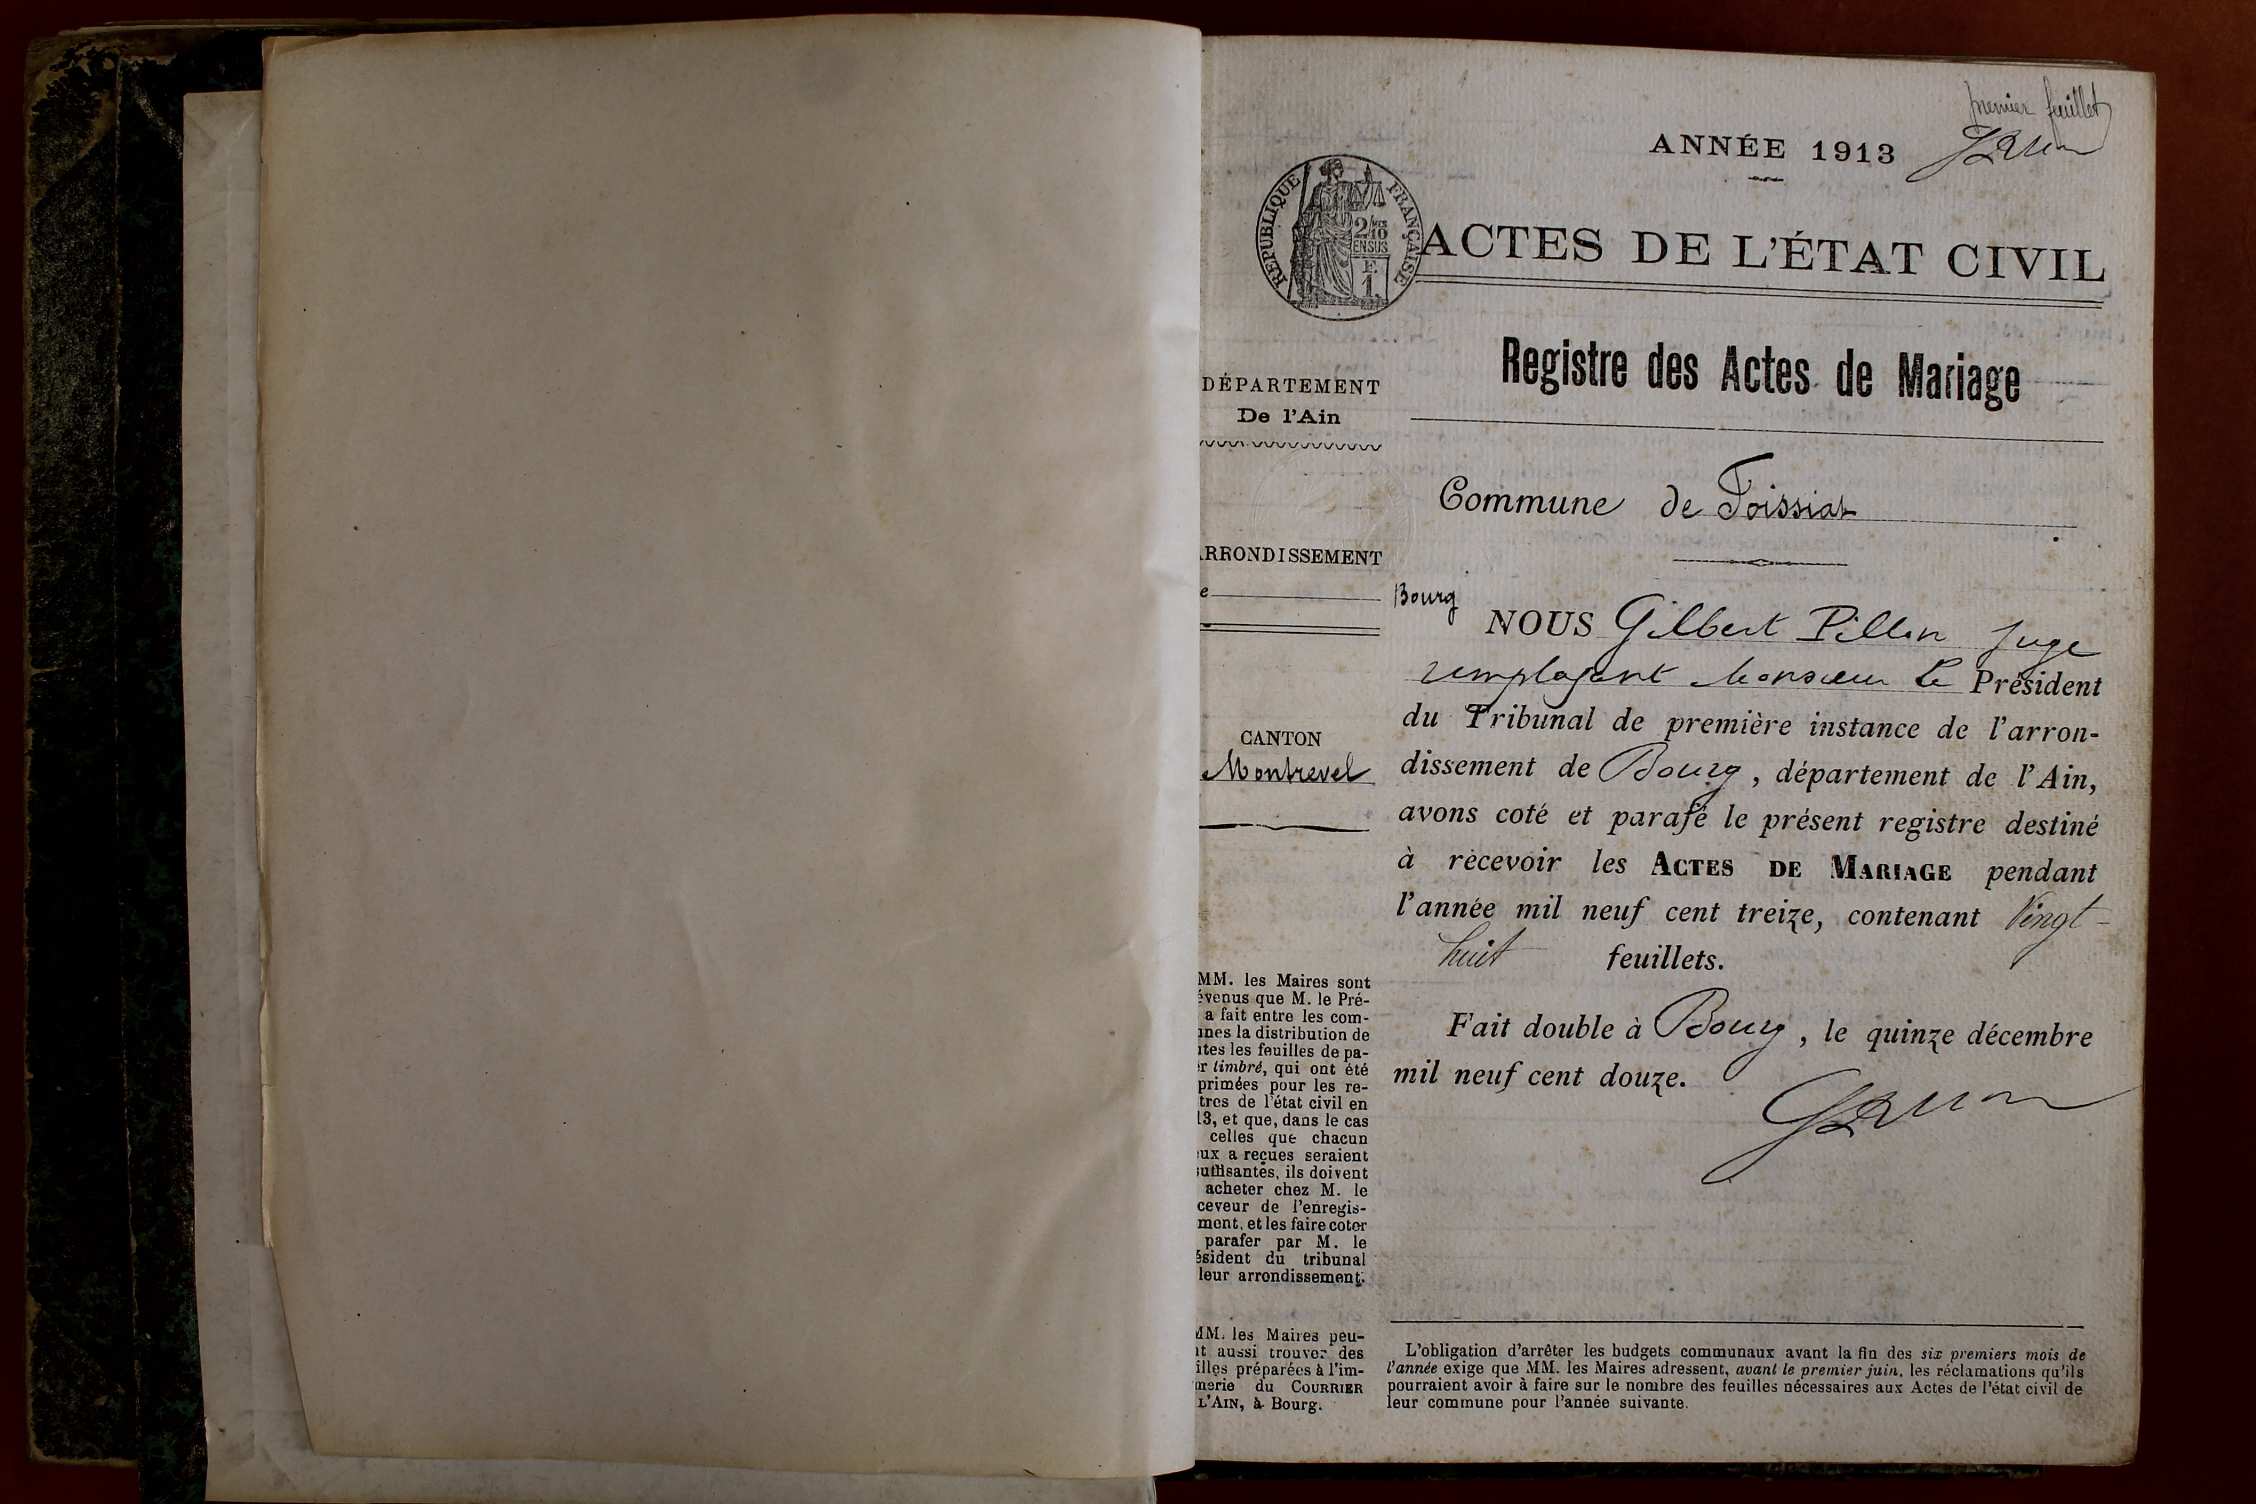 premier feuillet
ANNÉE 1913
RÉPUBLIQUE FRANÇAISE
2/10
EN SUS
F.
1.
ACTES DE L'ÉTAT CIVIL
Registre des Actes de Mariage
DÉPARTEMENT
De l'Ain
Commune de Foissiat
RRONDISSEMENT
e Bourg
CANTON
Montrevel
NOUS Gilbert Pillon juge
remplaçant Monsieur le Président
du Tribunal de première instance de l'arron-
dissement de Bourg, département de l'Ain,
avons coté et parafé le présent registre destiné
à recevoir les ACTES DE MARIAGE pendant
l'année mil neuf cent treize, contenant Vingt-
huit feuillets.
Fait double à Bourg, le quinze décembre
mil neuf cent douze.
MM. les Maires sont
évenus que M. le Pré-
a fait entre les com-
unes la distribution de
utes les feuilles de pa-
er timbré, qui ont été
primées pour les re-
tres de l'état civil en
13, et que, dans le cas
celles que chacun
eux a reçues seraient
suffisantes, ils doivent
acheter chez M. le
ceveur de l'enregis-
ment, et les faire coter
parafer par M. le
ésident du tribunal
leur arrondissement.
MM. les Maires peu-
nt aussi trouver des
illes préparées à l'im-
merie du COURRIER
L'AIN, à Bourg.
L'obligation d'arrêter les budgets communaux avant la fin des six premiers mois de
l'année exige que MM. les Maires adressent, avant le premier juin, les réclamations qu'ils
pourraient avoir à faire sur le nombre des feuilles nécessaires aux Actes de l'état civil de
leur commune pour l'année suivante.